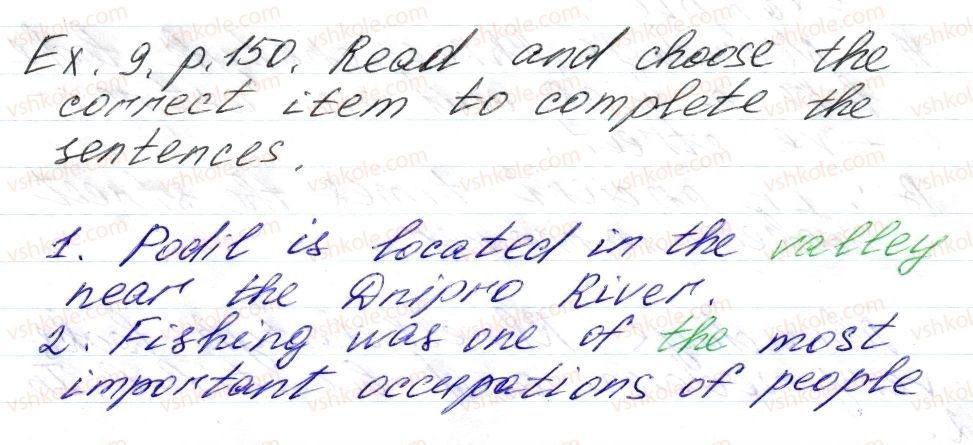 Ex. 9. p. 150. Read and choose the
correct item to complete the
sentences.
1. Podil is located in the valley
near the Dnipro River.
2. Fishing was one of the most
important occupations of people